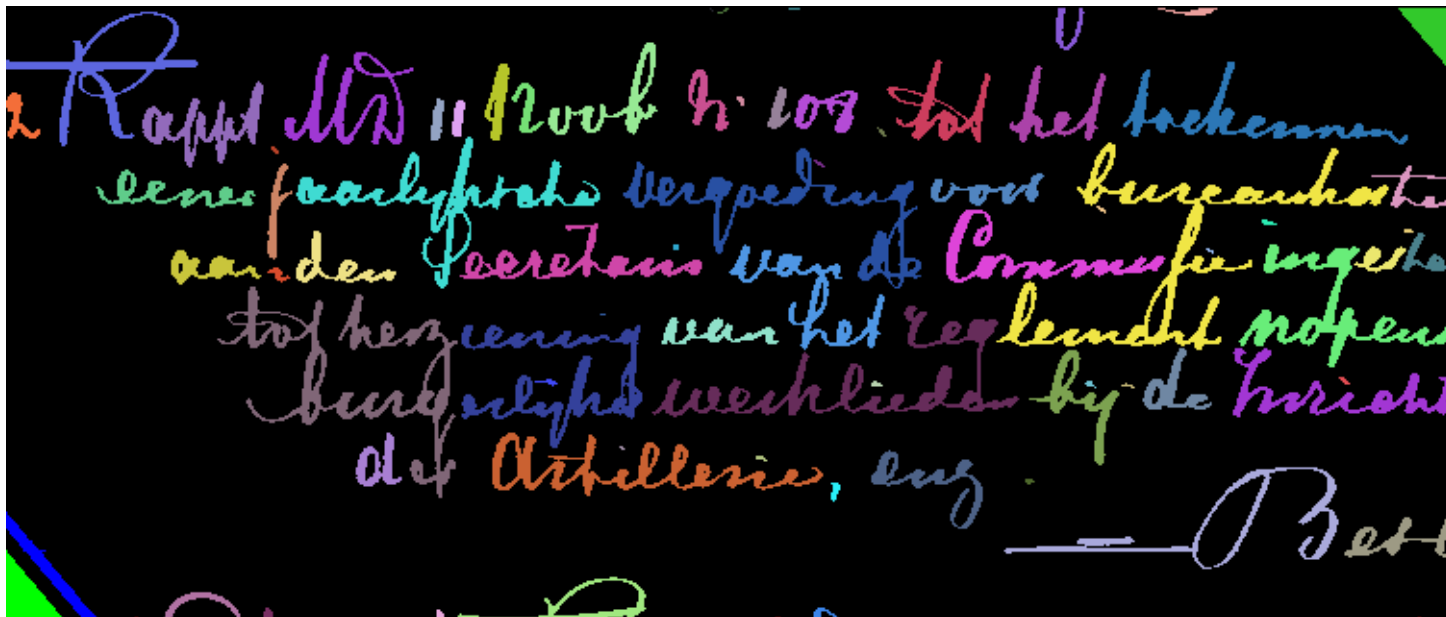 Rappt MD 11 Novb h: 108 tot het toekennen
eener jaarlyksche vergoeding voor bureaukos
aan den Secretaris van de Commissie inges
tot herziening van het reglement nopens
burgerlyke werklieden by de Inricht
der Artillerie, enz.
Bes